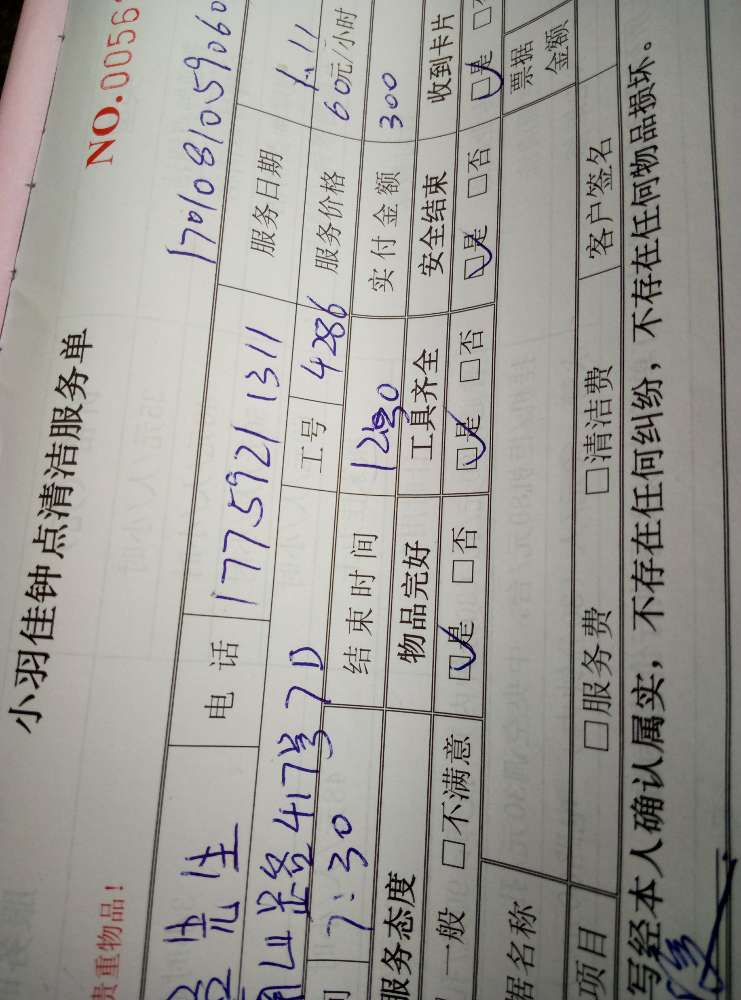 NO.0056
小羽佳钟点清洁服务单
1701081059060
贵重物品！
先生 电话 177 5921 1311 服务日期 1.11
山路417号7D 工号 4286 服务价格 60元/小时
7:30 结束时间 实付金额 300
服务态度 物品完好 工具齐全 安全结束 收到卡片
一般 □不满意 □是 □否 □是 □否 □是 □否 □是
据名称 票据金额
项目 □服务费 □清洁费 客户签名
写经本人确认属实，不存在任何纠纷，不存在任何物品损坏。